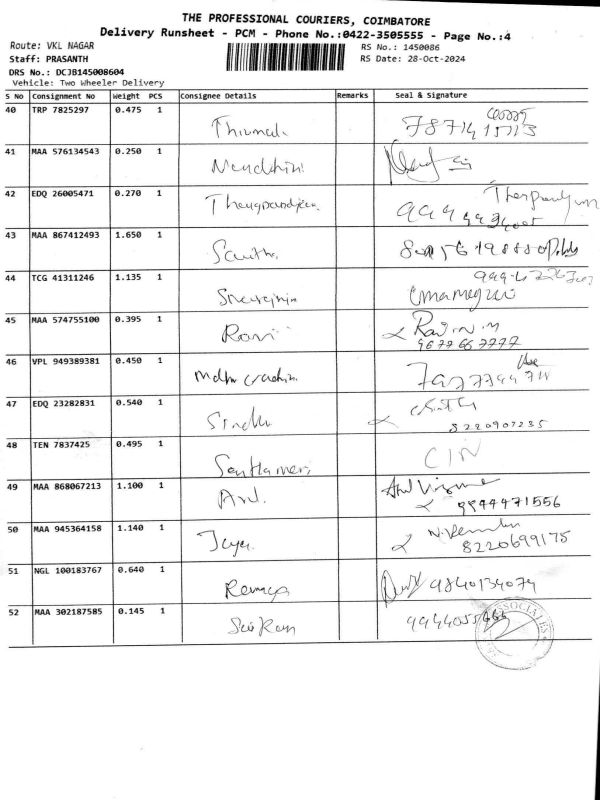 THE PROFESSIONAL COURIERS, COIMBATORE
Delivery Runsheet - PCM - Phone No.:0422-3505555 - Page No.:4
Route: VKL NAGAR RS No.: 1450086
Staff: PRASANTH RS Date: 28-Oct-2024
DRS No.: DCJB145008604
Vehicle: Two Wheeler Delivery
S No Consignment No Weight PCS Consignee Details Remarks Seal & Signature
40 TRP 7825297 0.475 1
41 MAA 576134543 0.250 1 Nandhini
42 EDQ 26005471 0.270 1
43 MAA 867412493 1.650 1
44 TCG 41311246 1.135 1
45 MAA 574755100 0.395 1 Ravi
46 VPL 949389381 0.450 1
47 EDQ 23282831 0.540 1 Sindhu
8220907235
48 TEN 7837425 0.495 1 CIN
49 MAA 868067213 1.100 1 Arul
9944471556
50 MAA 945364158 1.140 1 Jaya
8220699175
51 NGL 100183767 0.640 1 Ramya 9840134074
52 MAA 302187585 0.145 1 Sai Ram
ASSOCIATES